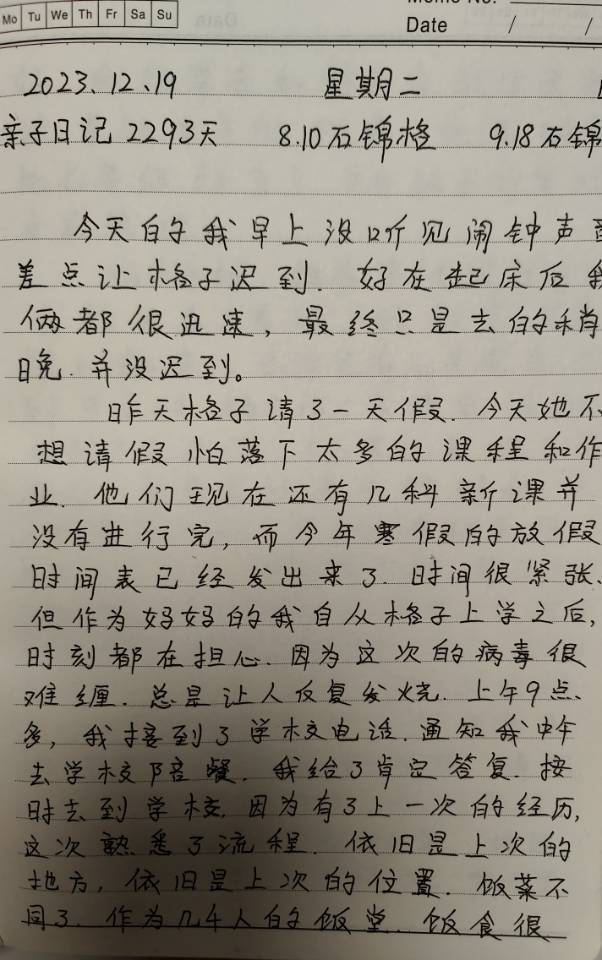 Mo Tu We Th Fr Sa Su
Memo No.
Date / /
2023.12.19 星期二
亲子日记 2293天 8.10石锦格 9.18石锦
今天的我早上没听见闹钟声
差点让格子迟到. 好在起床后我
俩都很迅速，最终只是去的稍
晚. 并没迟到。
昨天格子请了一天假. 今天她不
想请假怕落下太多的课程和作
业. 他们现在还有几科新课并
没有进行完，而今年寒假的放假
时间表已经发出来了. 时间很紧张.
但作为妈妈的我自从格子上学之后，
时刻都在担心. 因为这次的病毒很
难缠. 总是让人反复发烧. 上午9点
多，我接到了学校电话. 通知我中午
去学校陪餐. 我给了肯定答复. 按
时去到学校. 因为有了上一次的经历，
这次熟悉了流程. 依旧是上次的
地方，依旧是上次的位置. 饭菜不
同了. 作为几千人的饭堂. 饭食很